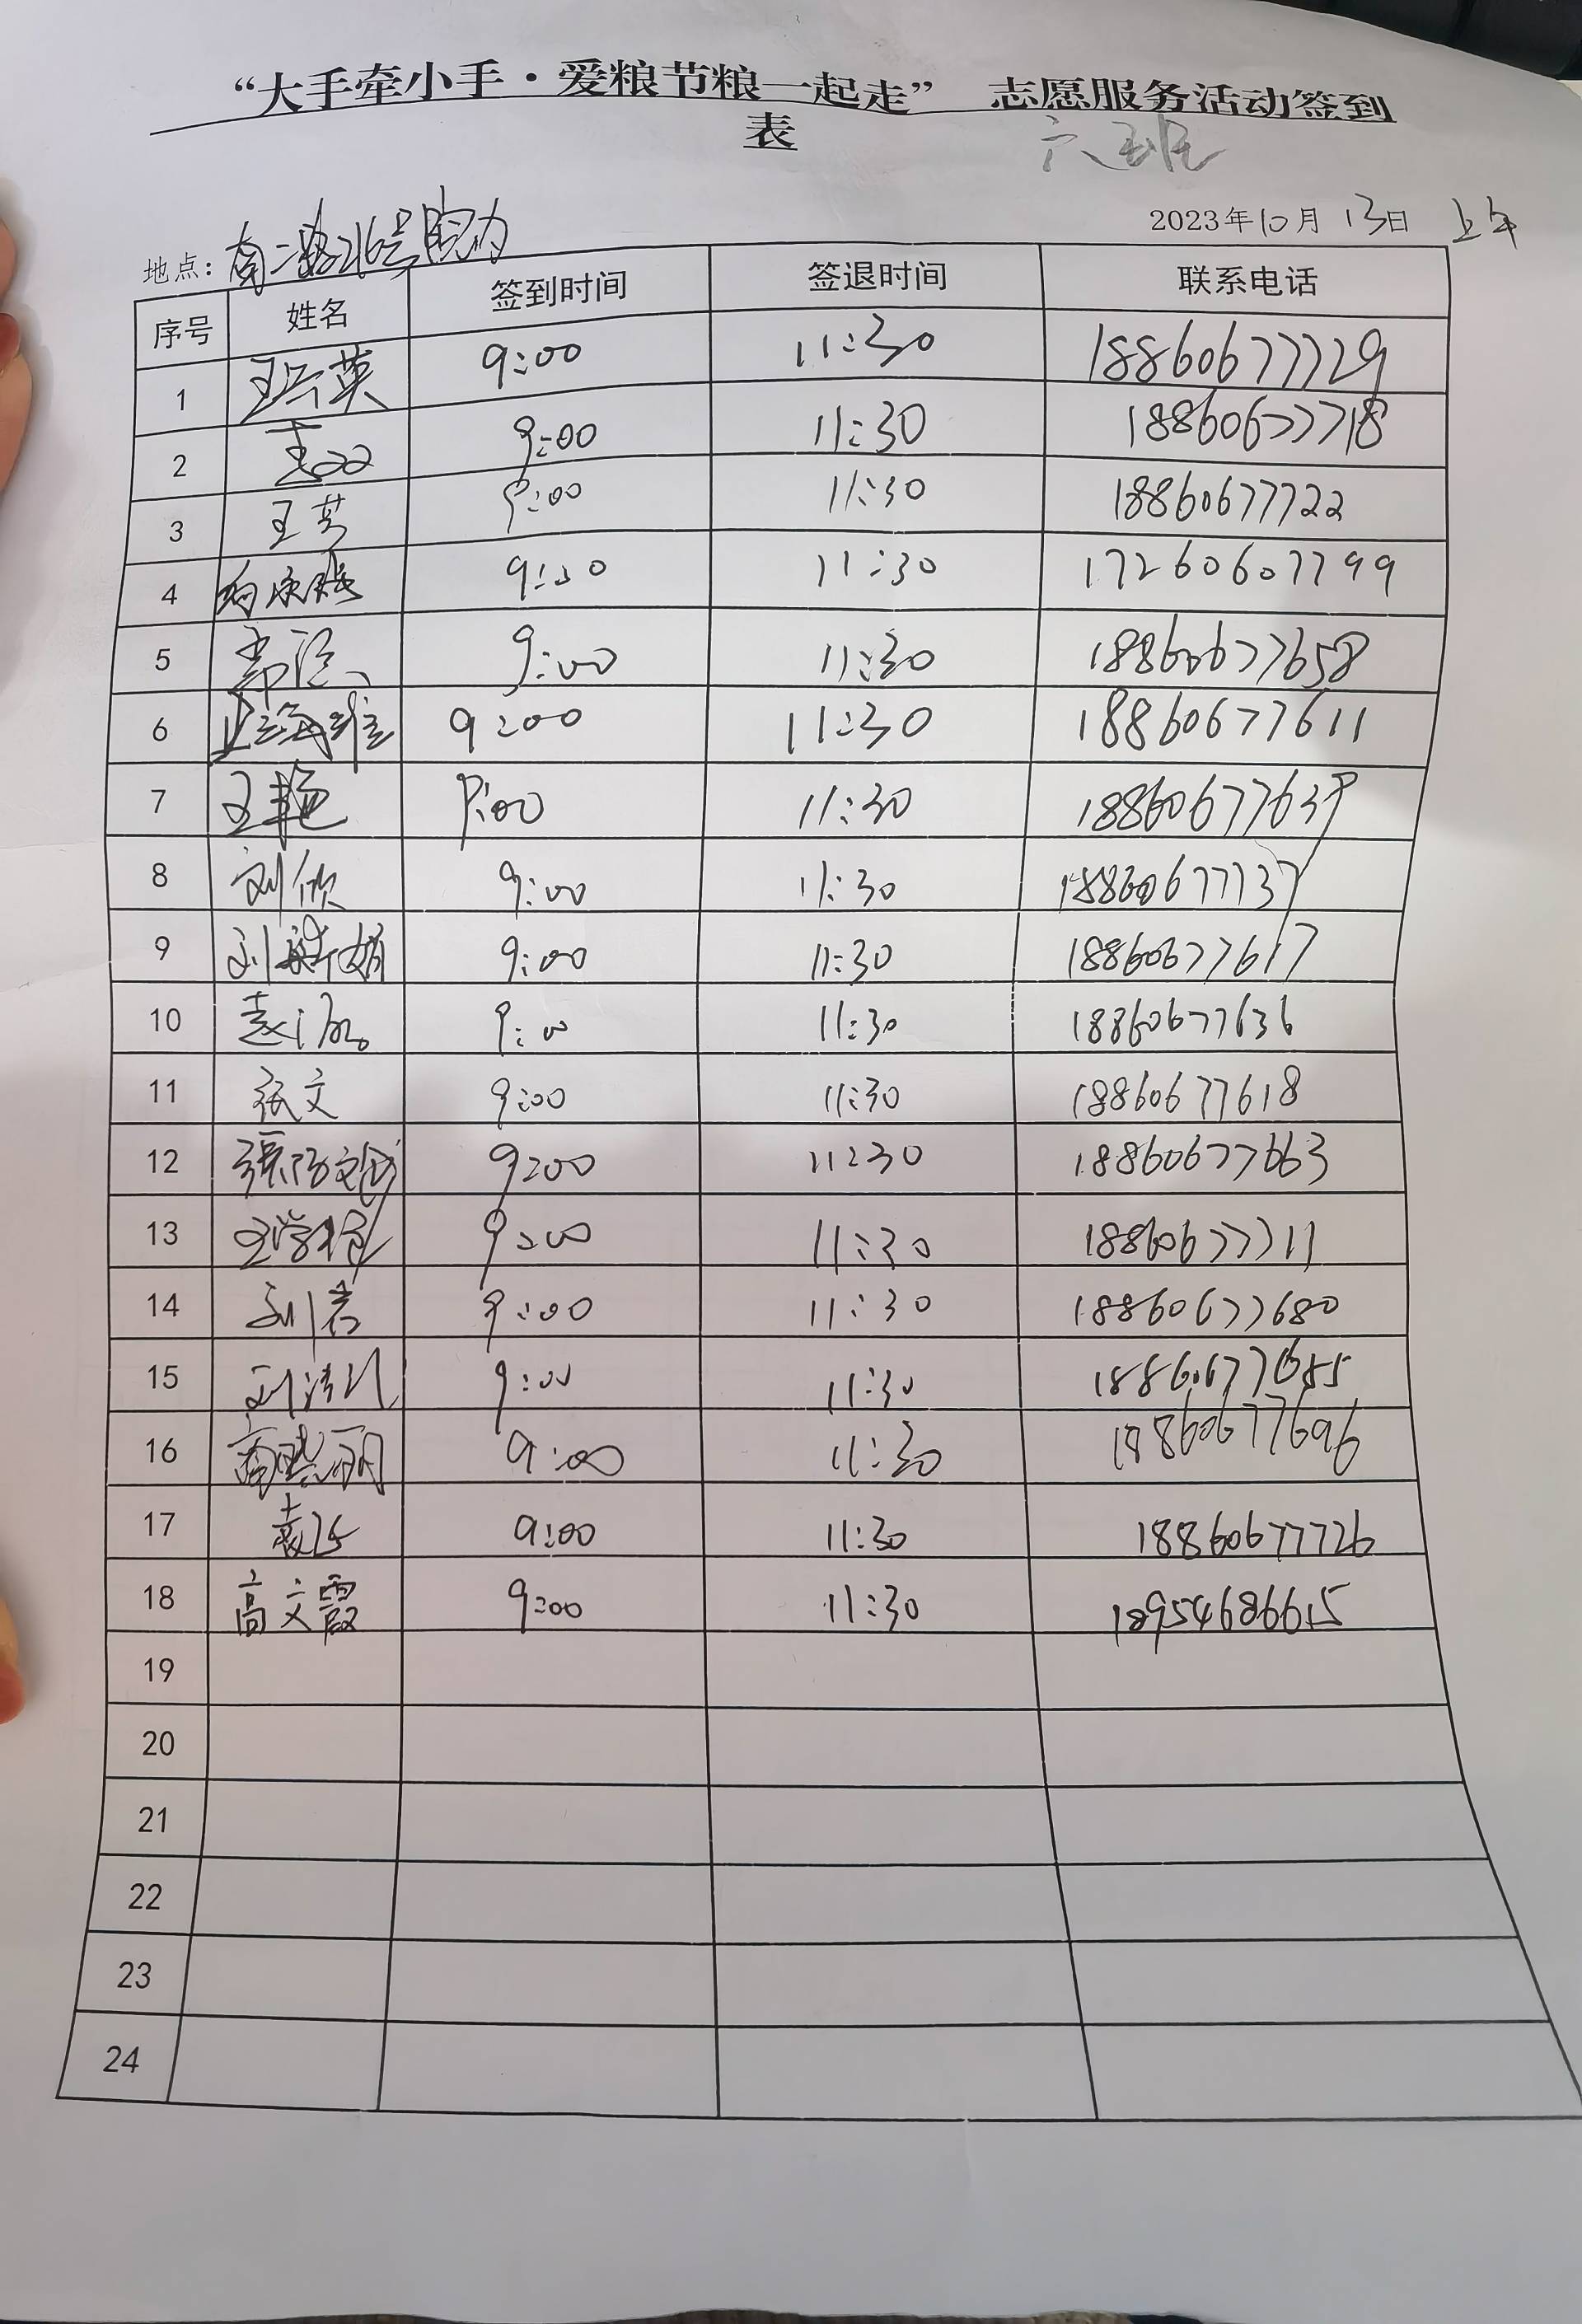 “大手牵小手·爱粮节粮一起走” 志愿服务活动签到
表
六班
2023年10月13日 上午
地点：南二路216号
序号 姓名 签到时间 签退时间 联系电话
1 9:00 11:30 18860677729
2 9:00 11:30 18860677718
3 王芳 9:00 11:30 18860677722
4 11:30 17260607799
5 9:00 11:30 18860677658
6 9:00 11:30 18860677611
7 王艳 9:00 11:30
8 刘欣 9:00 11:30 18860677737
9 9:00 11:30 18860677617
10 9:00 11:30 18860677636
11 张文 9:00 11:30 18860677618
12 9:00 11:30 18860677663
13 9:00 11:30 18860677711
14 刘君 9:00 11:30 18860677680
15 9:00 11:30
16 商晓丽 9:00 11:30 18860677696
17 9:00 11:30 18860677726
18 高文霞 9:00 11:30 18954686615
19
20
21
22
23
24